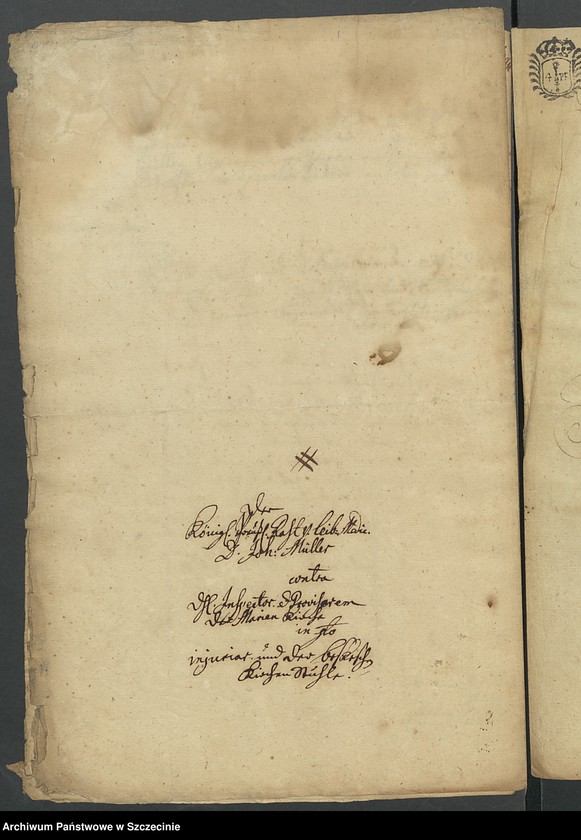 der
Königl. Preuß. Raht u. leib Medic.
D. Joh: Müller
contra
Inspector. & Provisorem
der Marien Kirche
in pto
injuriar. und der
Kirchen Stühle.
Archiwum Państwowe w Szczecinie